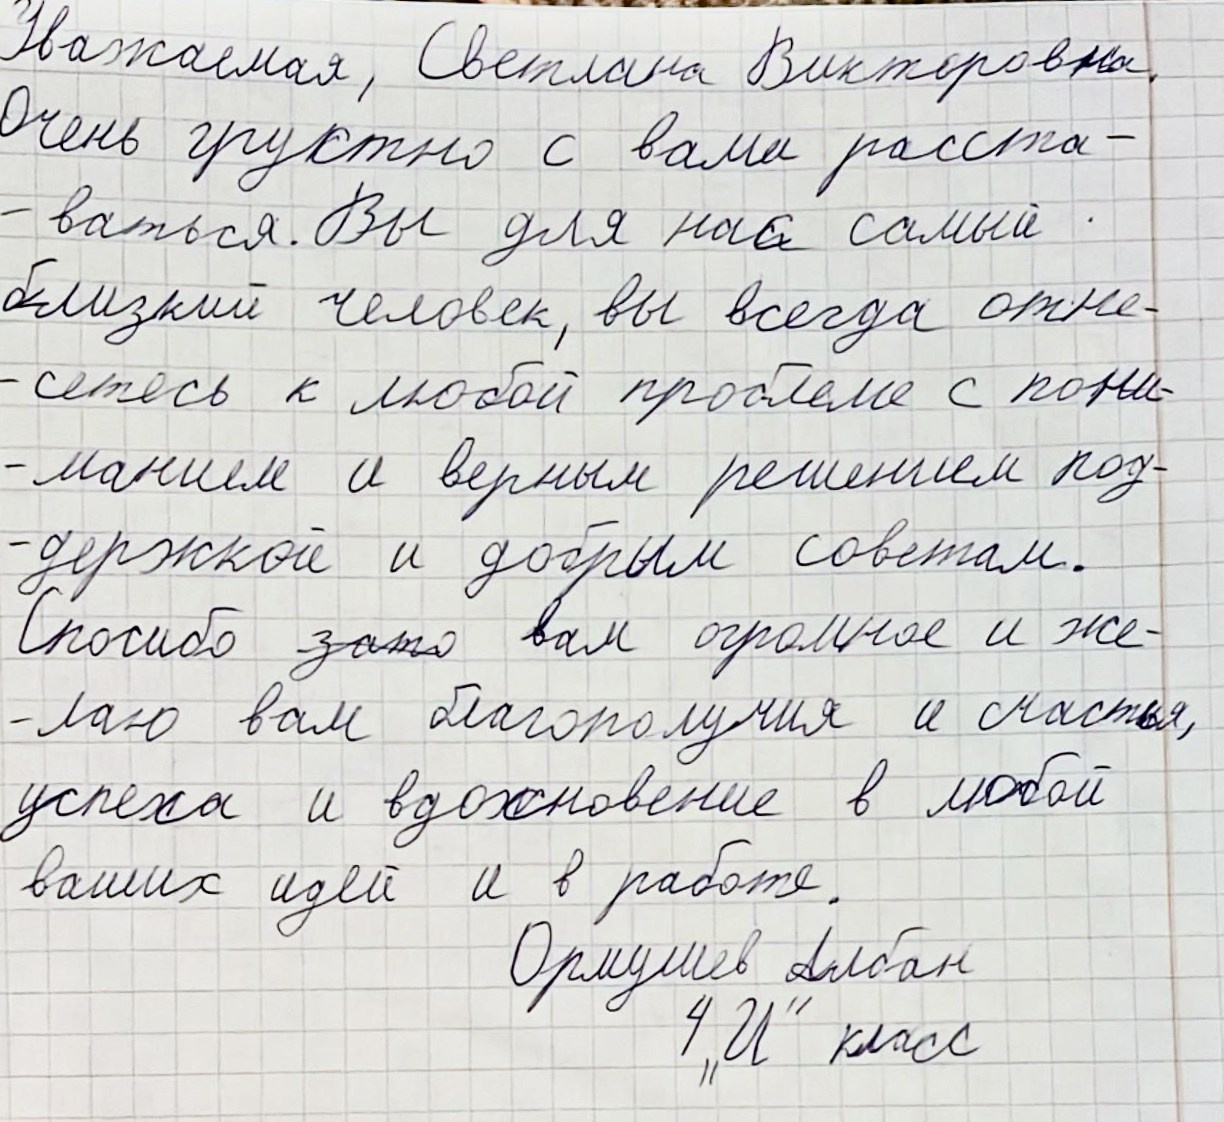 Уважаемая, Светлана Викторовна.
Очень груктно с вами расста-
-ваться. Вы для нас самый
близкий человек, вы всегда отне-
-сетесь к любой проблеме с пони-
-манием и верным решением под-
-держкой и добрым советам.
Спосибо зато вам огромное и же-
-лаю вам благополучия и счастья,
успеха и вдохновение в любой
ваших идей и в работе.
Ормушев Албан
4 „И" класс